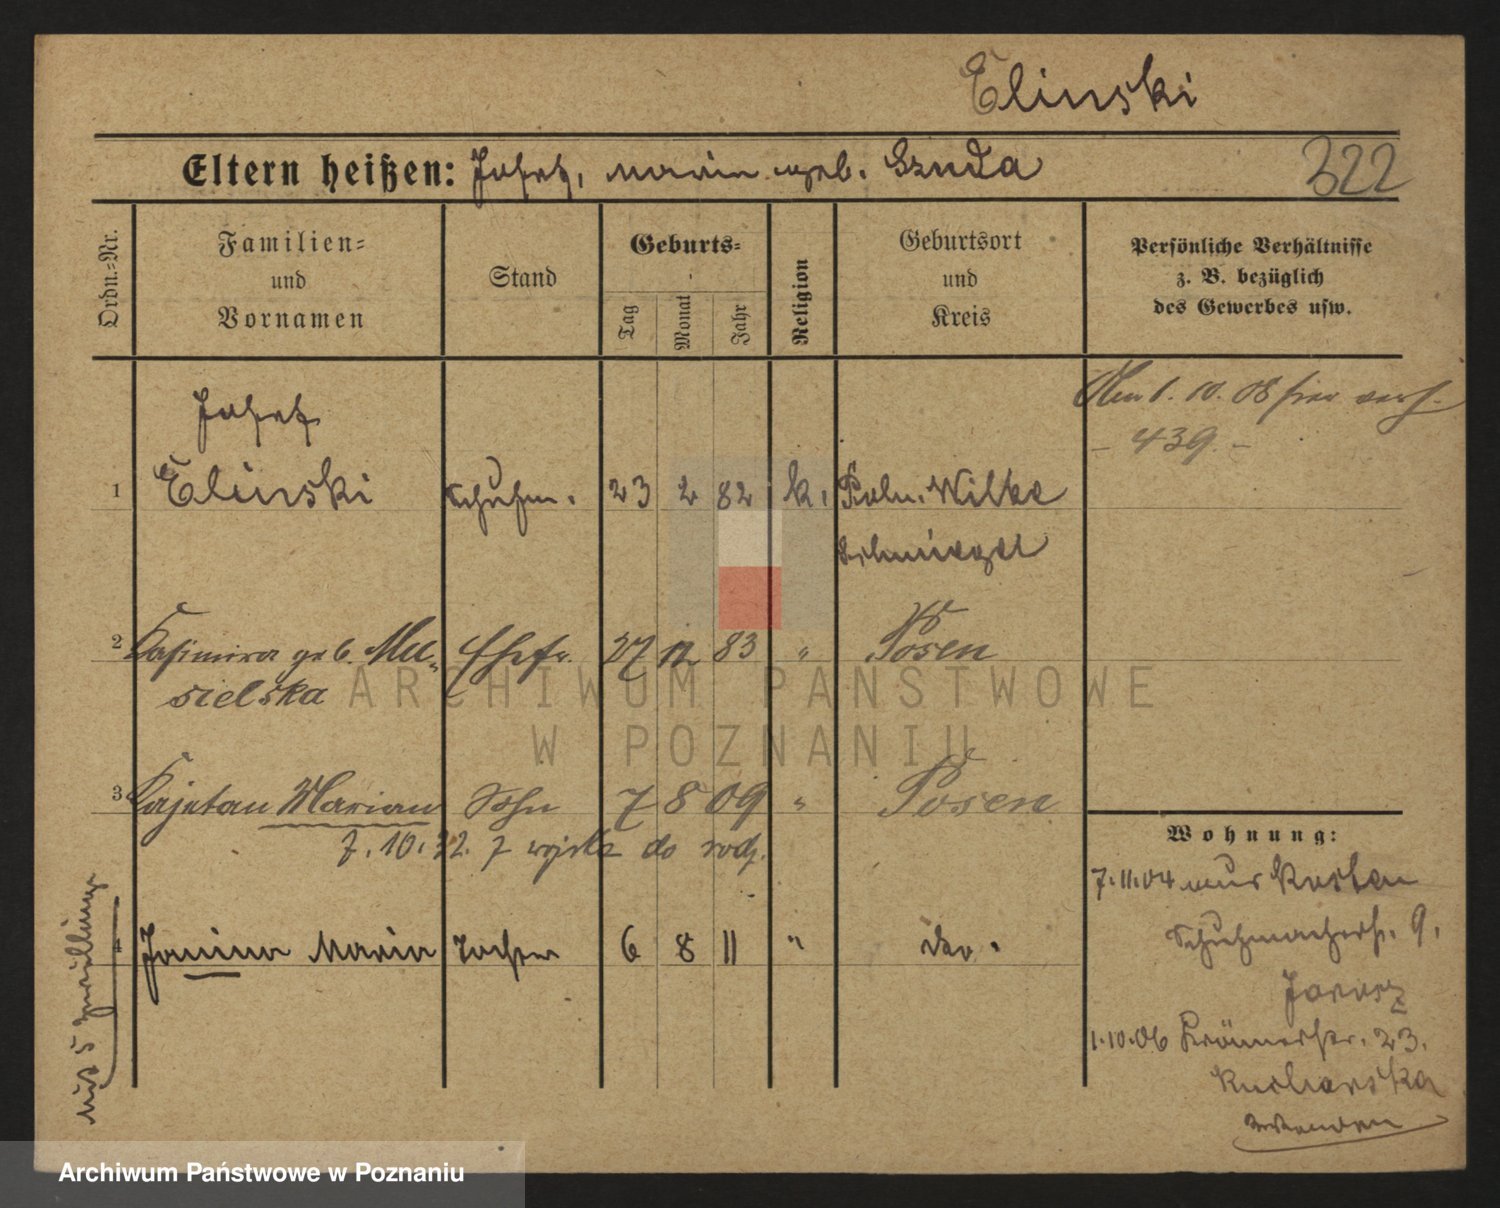 Elinski
Eltern heißen: Josef, Maria geb. Szuda
322
Ordn.-Nr.
Familien-
und
Vornamen
Stand
Geburts-
Tag
Monat
Jahr
Religion
Geburtsort
und
Kreis
Persönliche Verhältnisse
z. B. bezüglich
des Gewerbes usw.
10. 08 hier
- 439. -
Josef
1 Elinski Schuhm. 23 2 82 k. Poln. Wilke
Schmiegel
2 Kasimira geb. Mu-
sielska Ehefr. 27 12 83 " Posen
3 Kajetan Marian Sohn 7 8 09 " Posen
7. 10. 22. z wojska do rodz.
4 Janina Maria Tochter 6 8 11 " do.
Wohnung:
7.11.04 aus Kosten
Schuhmacherstr. 9.
1.10.06 Krämerstr. 23.
Kucharska
wenden
ARCHIWUM PAŃSTWOWE
W POZNANIU
Archiwum Państwowe w Poznaniu